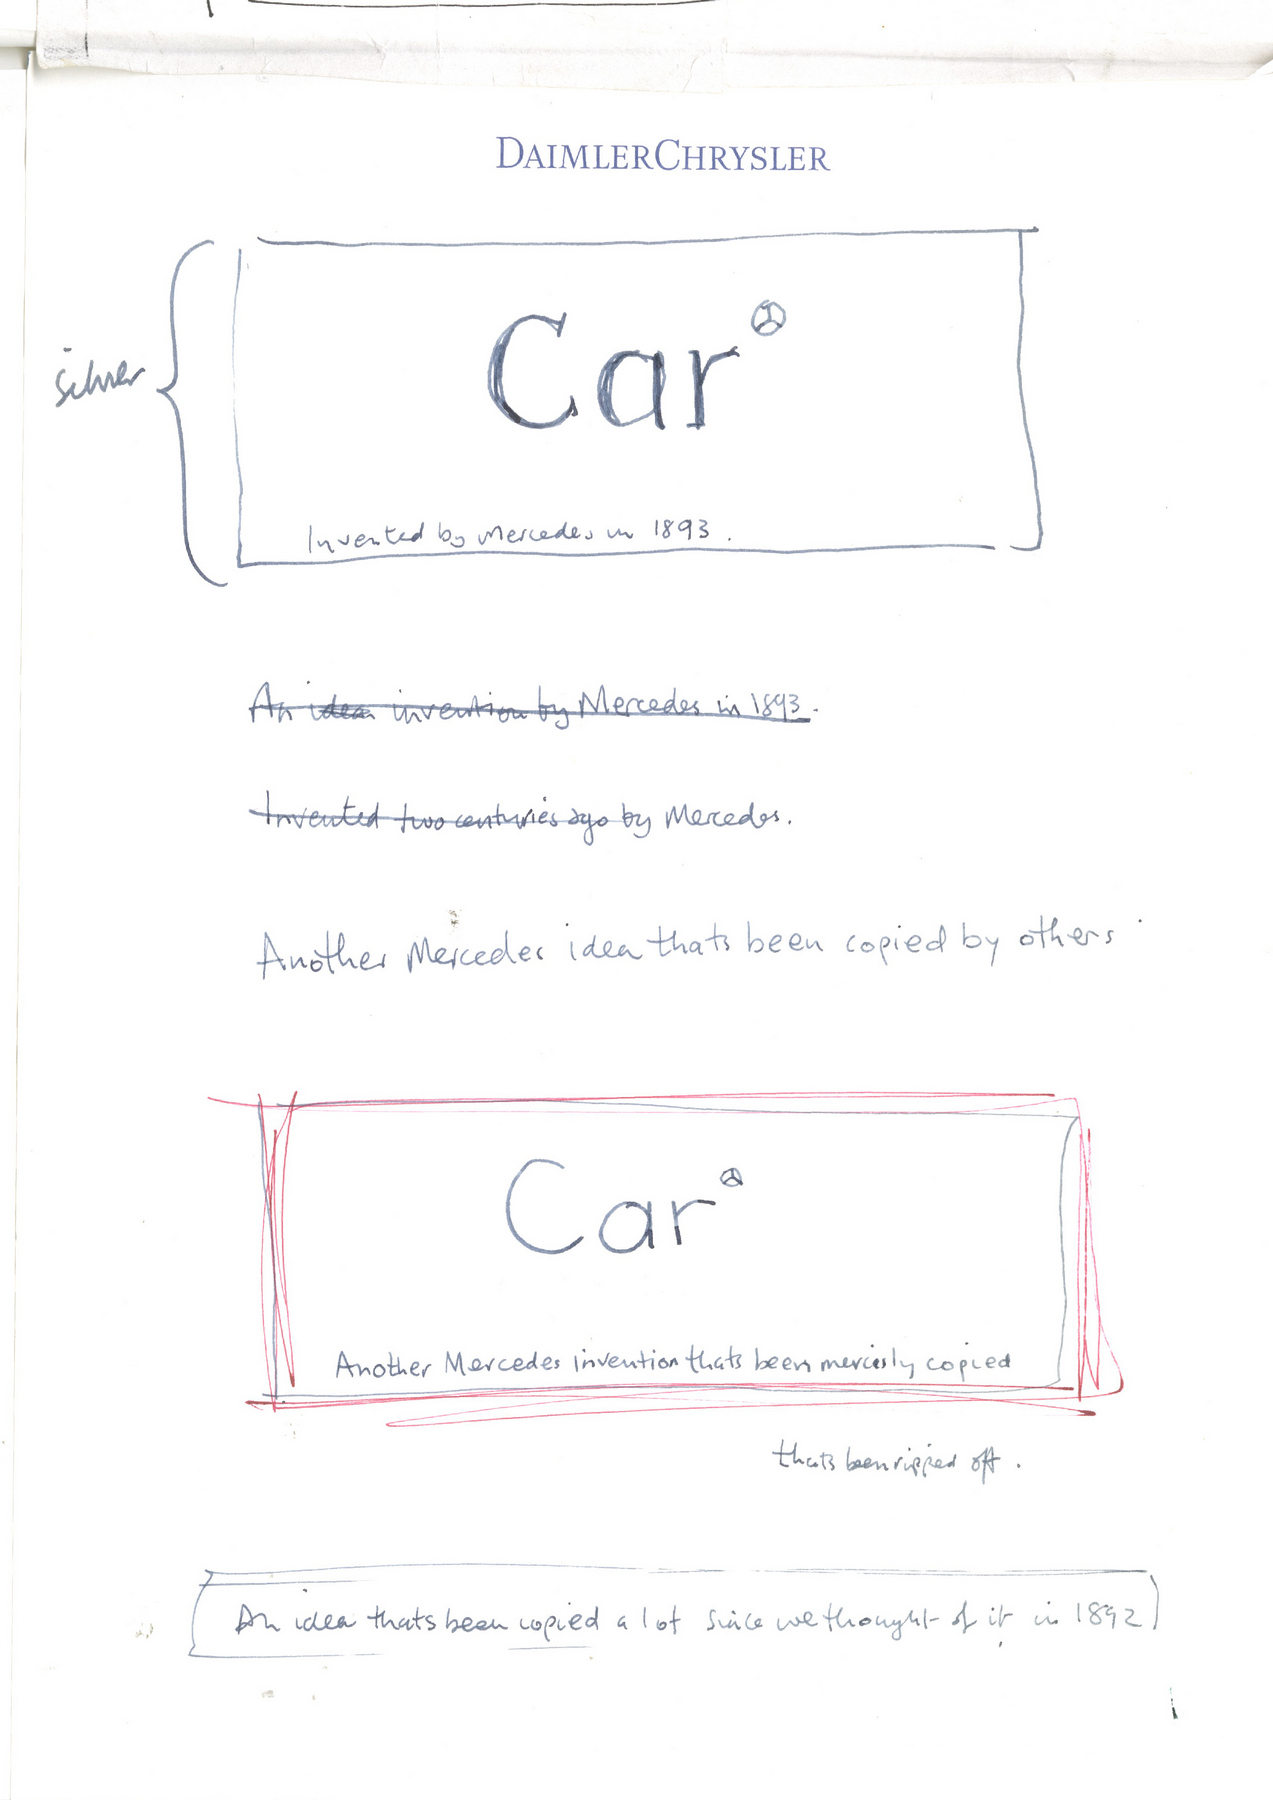 DAIMLERCHRYSLER
Car
silver
Invented by Mercedes in 1893.
An idea invention by Mercedes in 1893.
Invented two centuries ago by Mercedes.
Another Mercedes idea thats been copied by others
Car
Another Mercedes invention thats been mercisly copied
thats been ripped off.
An idea thats been copied a lot since we thought of it in 1892